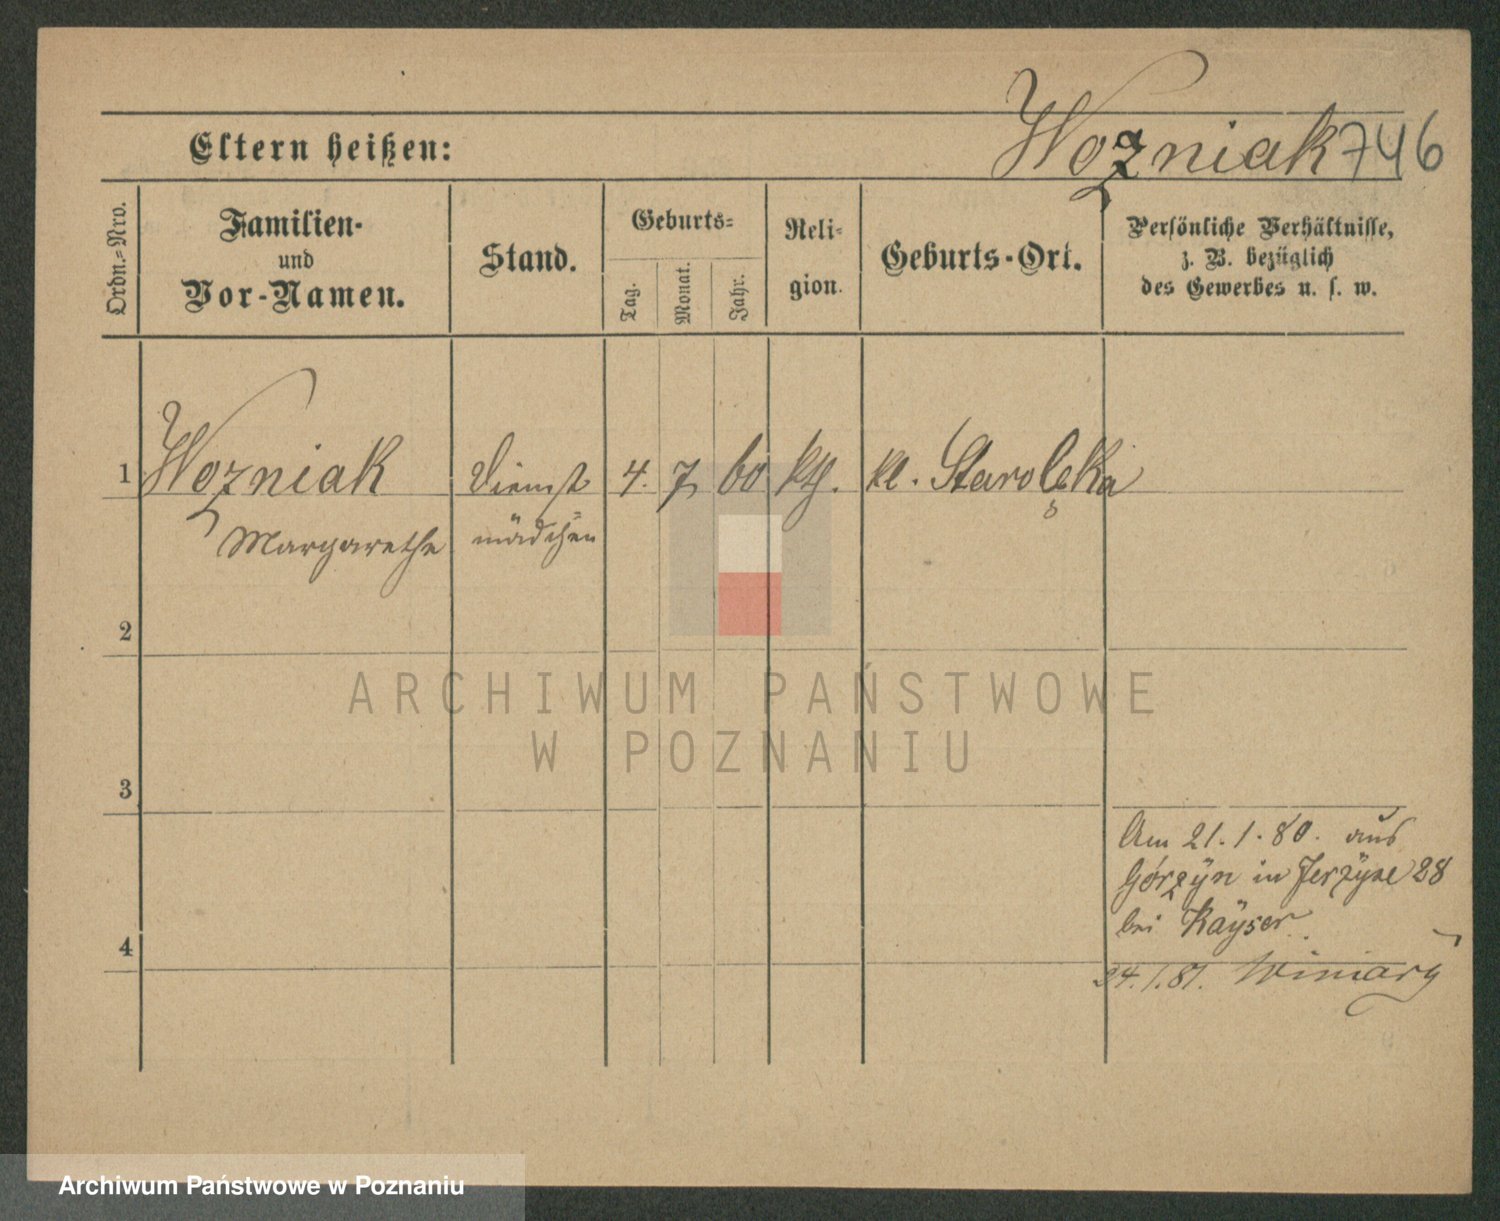 Wozniak 746
Eltern heißen:
Ordn.=Nro.
Familien-
und
Vor-Namen.
Stand.
Geburts=
Tag.
Monat.
Jahr.
Reli=
gion.
Geburts-Ort.
Persönliche Verhältnisse,
z. B. bezüglich
des Gewerbes u. s. w.
1 Wozniak Dienst 4. 7. 60 kth. kl. Starolęka
Margarethe mädchen
2
3
Am 21.1.80. aus
Górzÿn in Jerzÿce 28
bei Kaÿser.
4
24.1.81. Winiary
ARCHIWUM PAŃSTWOWE
W POZNANIU
Archiwum Państwowe w Poznaniu